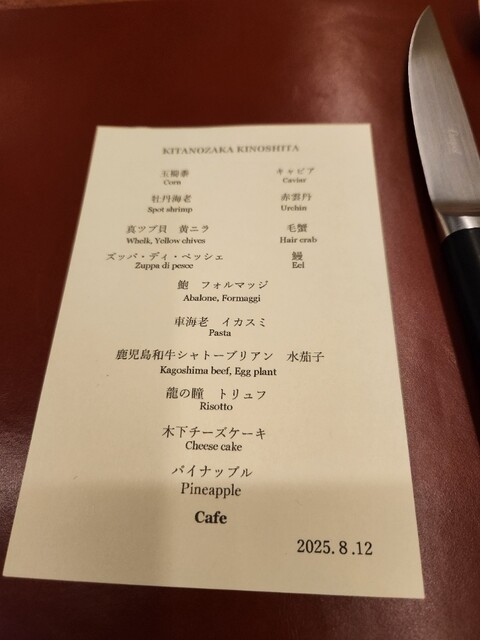 KITANOZAKA KINOSHITA
玉蜀黍 キャビア
Corn Caviar
牡丹海老 赤雲丹
Spot shrimp Urchin
真ツブ貝 黄ニラ 毛蟹
Whelk, Yellow chives Hair crab
ズッパ・ディ・ペッシェ 鰻
Zuppa di pesce Eel
鮑 フォルマッジ
Abalone, Formaggi
車海老 イカスミ
Pasta
鹿児島和牛シャトーブリアン 水茄子
Kagoshima beef, Egg plant
龍の瞳 トリュフ
Risotto
木下チーズケーキ
Cheese cake
パイナップル
Pineapple
Cafe
2025.8.12